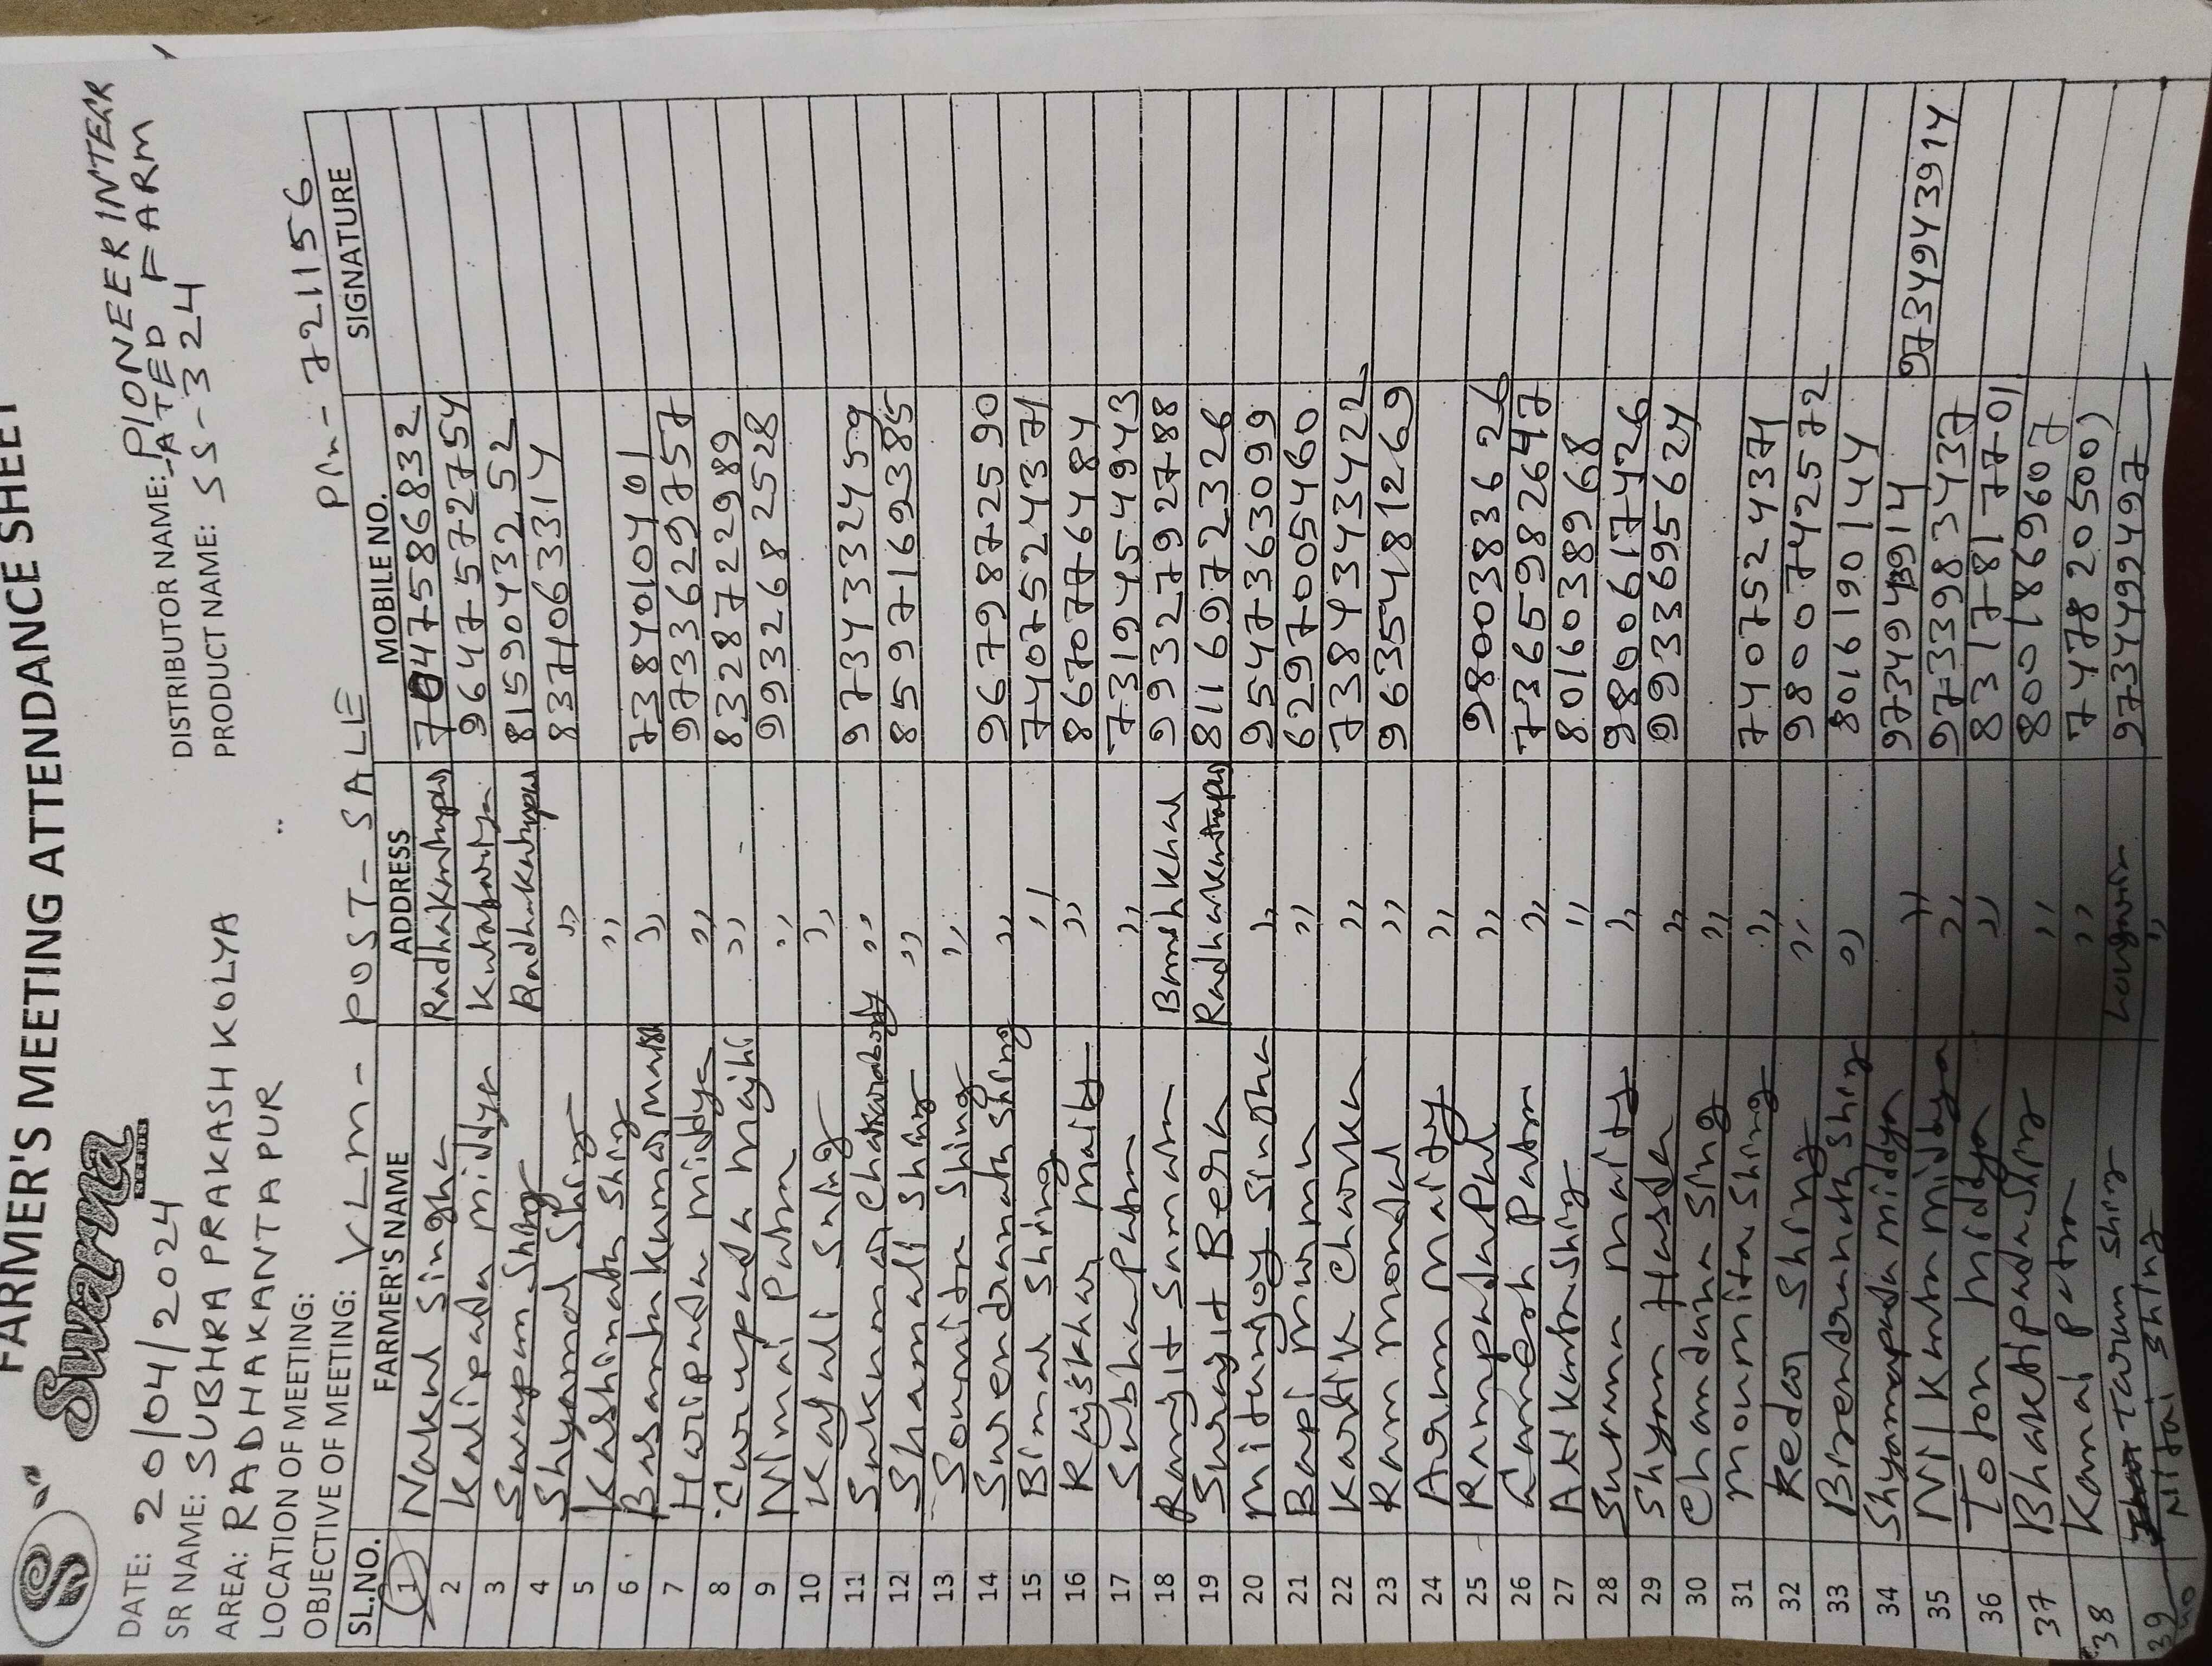 FARMER'S MEETING ATTENDANCE SHEET
Swarna
DATE: 20/04/2024
DISTRIBUTOR NAME: PIONEER INTEGR
-ATED FARM
SR NAME: SUBHRA PRAKASH KOLYA
PRODUCT NAME: SS-324
AREA: RADHAKANTAPUR
LOCATION OF MEETING:
OBJECTIVE OF MEETING: VLM - POST-SALE Pin- 721156
SL.NO. FARMER'S NAME ADDRESS MOBILE NO. SIGNATURE
1 Nakul Singha Radhakantapur 7047586832
2 Kalipada middya 9647572754
3 Swapan Shing Radhakantapur 8159043252
4 Shyamal Shing ,, 8371063314
5 Kashinath Shing ,,
6 Basanta Kumar Maiti ,, 7384010401
7 Haripada middya ,, 9733629757
8 Gurupada majhi ,, 8328722989
9 Nimai Patra ,, 9932682528
10 Kajali Shing ,,
11 Sukumar Chakraborty ,, 9734332459
12 Shamali Shing ,, 8597169385
13 Soumitra Shing ,,
14 Surendranath Shing ,, 9679872590
15 Bimal Shing ,, 7407524371
16 Rajsekhar maity ,, 8670776484
17 Subha Patra ,, 7319454943
18 Ranjit Samanta Banshkhal 9932792788
19 Surajit Bera Radhakantapur 8116972326
20 Mitunjoy Singha ,, 9547363099
21 Bapi ,, 6297005460
22 Kartik ,, 7384343422
23 Ram Mondal ,, 9635481269
24 Arun Maity ,,
25 Rampada Pal ,, 9800383626
26 Ganesh Patra ,, 7365982647
27 Adikanta Shing ,, 8016038968
28 Suman maity ,, 9800617426
29 Shyam Hasda ,, 9933695624
30 Chandana Sing ,,
31 moumita Shing ,, 7407524371
32 Kedar Shing ,, 9800742572
33 Birendranath Shing ,, 8016190144
34 Shyamapada middya ,, 9734943914 9734943914
35 Nilkanta Middya ,, 9733983437
36 Toton Middya ,, 8317817701
37 Bhaktipada Shing ,, 8001869607
38 Kamal patra ,, 7478205001
39 Tarun Shing 9734992497
40 Nitai Shing ,,